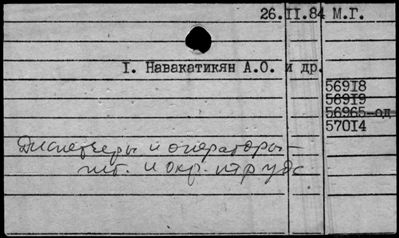 26.II.84 М.Г.
I. Навакатикян А.О. и др.
56918
56919
56965-од
57014
Диспетчеры и операторы –
гиг. и охр. труда